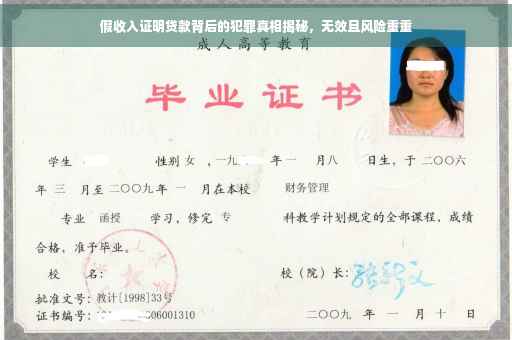 假收入证明贷款背后的犯罪真相揭秘，无效且风险重重
成人高等教育
毕业证书
学生 性别 女 ，一九 年 一 月八 日生，于 二〇〇六
年 三 月至 二〇〇九 年 一 月在本校 财务管理
专业 函授 学习，修完 专 科教学计划规定的全部课程，成绩
合格，准予毕业。
校 名： 校（院）长：
批准文号：教计[1998]33号
证书编号： 06001310 二〇〇九 年 一 月 十 日